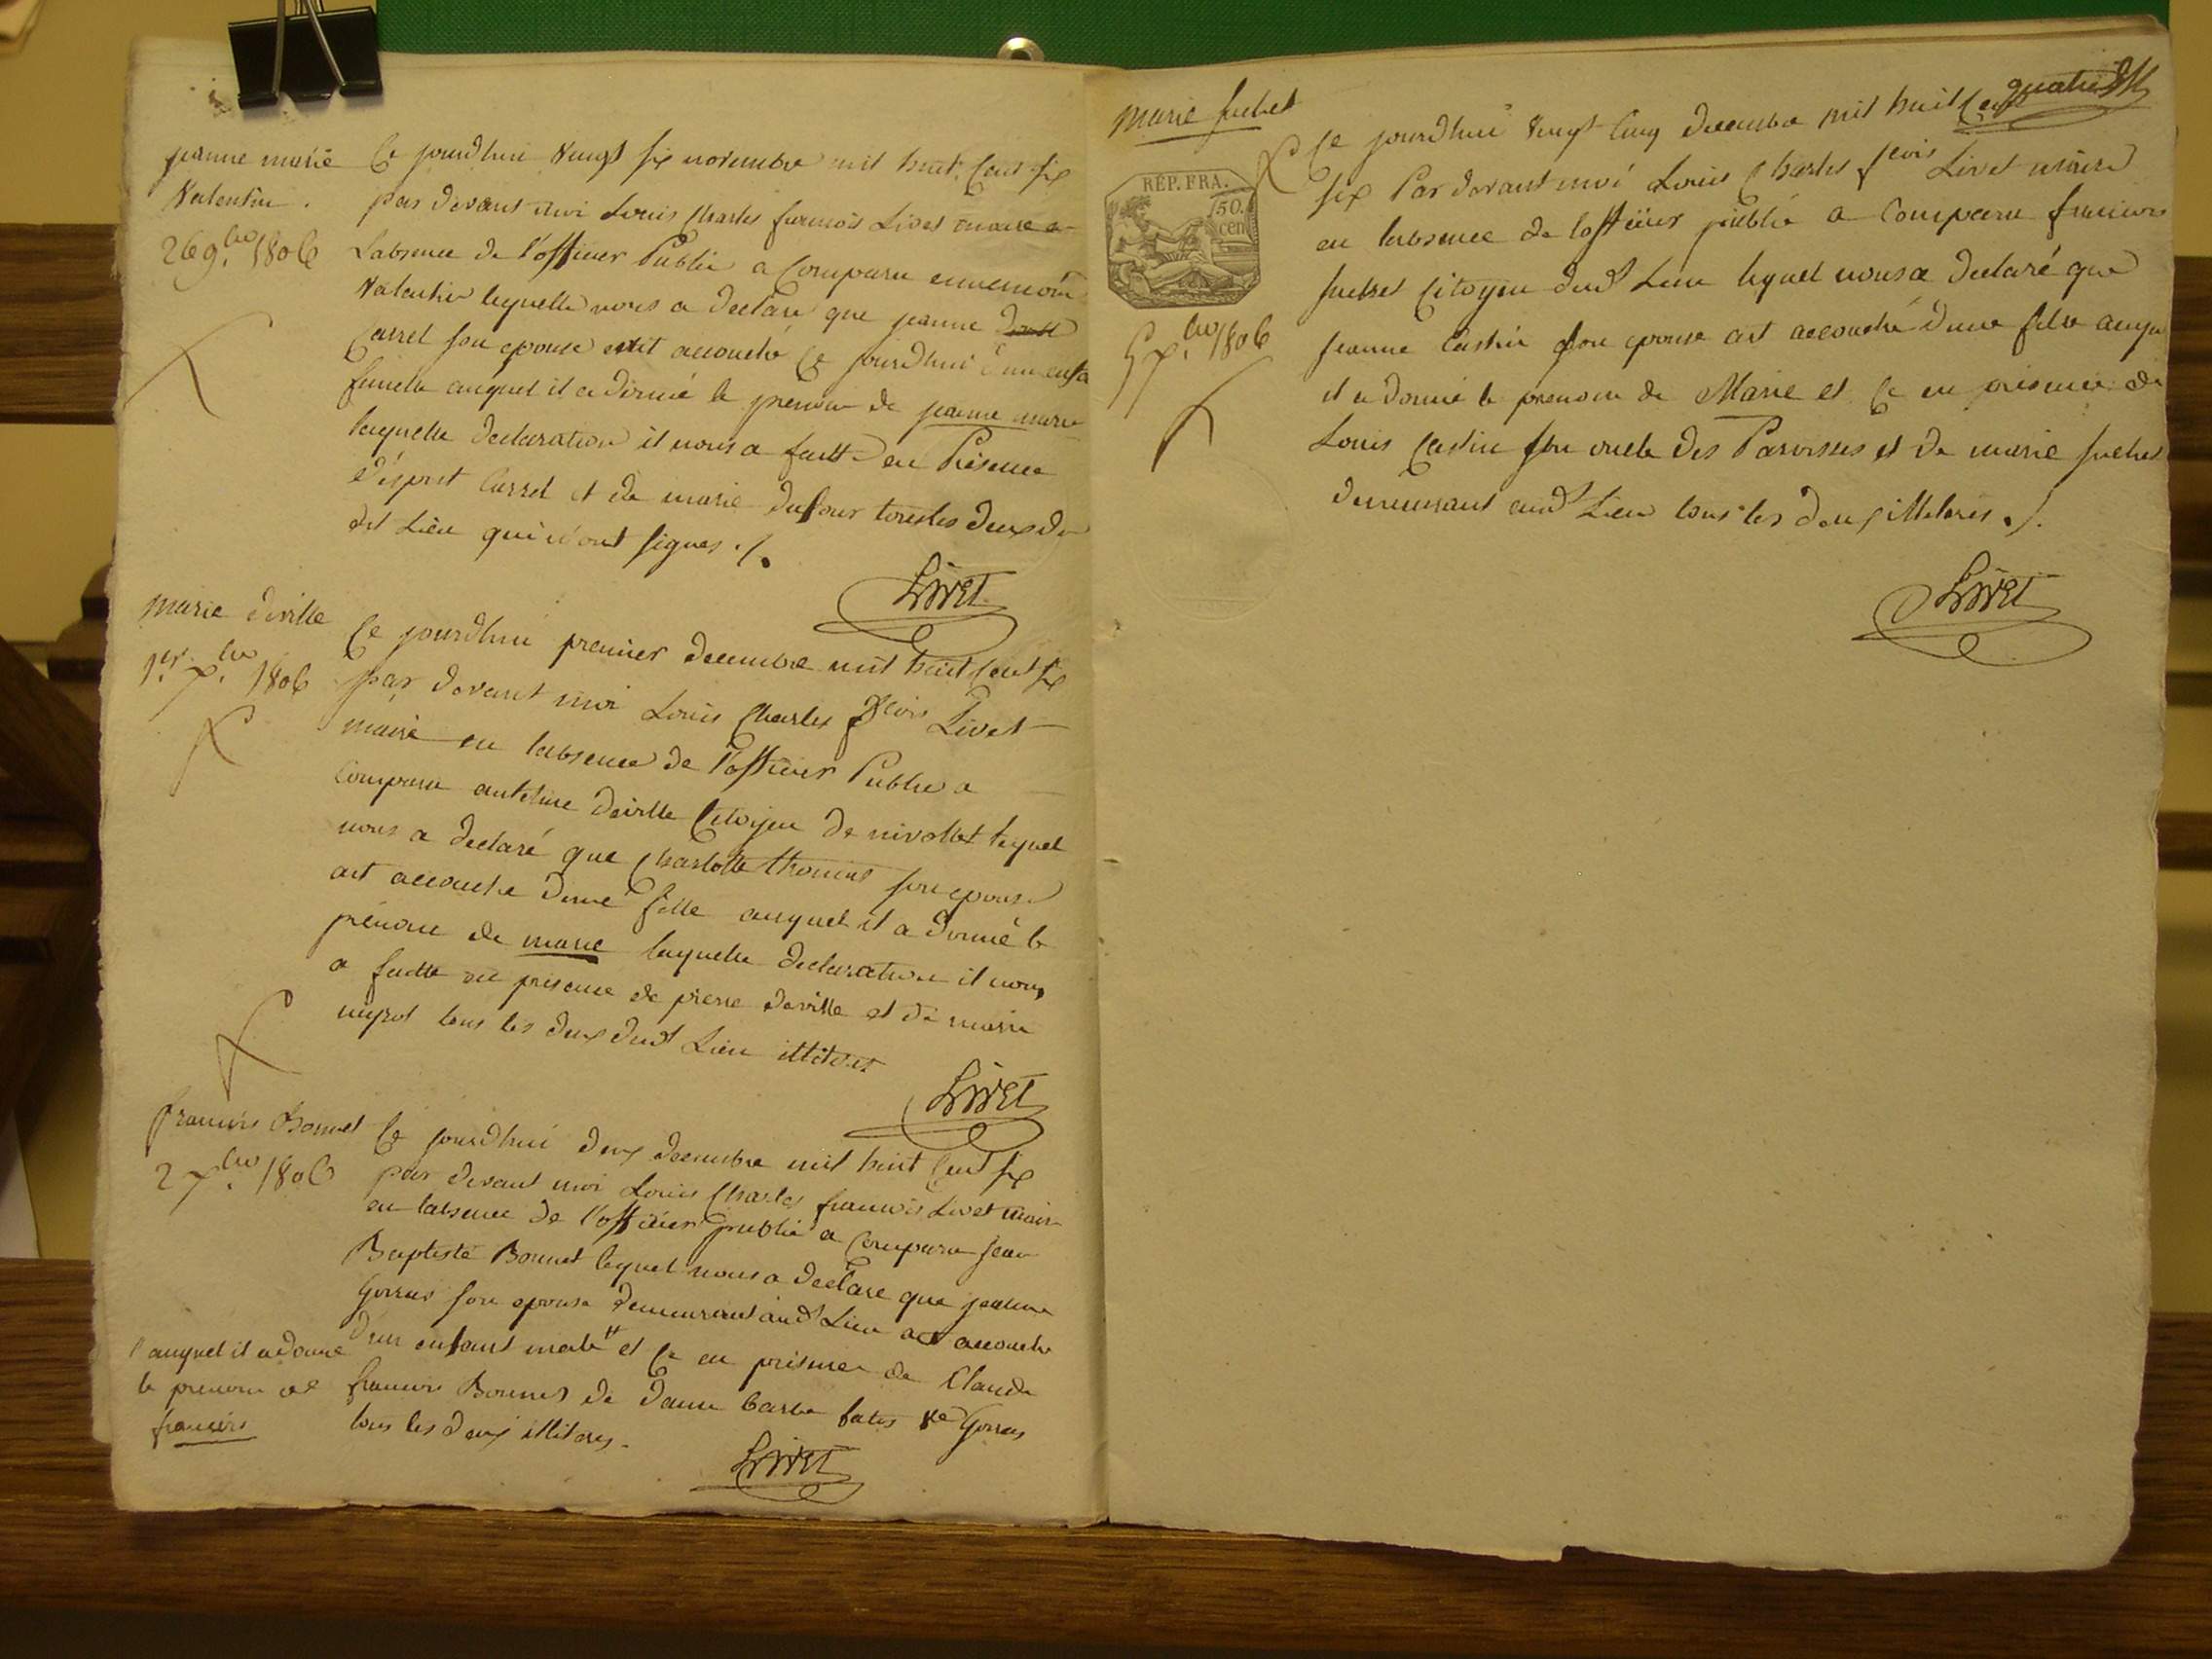 jeanne marie
Valentin .
26 9.bre 1806
Ce jourdhui Vingt six novembre mil huit Cent six
par devant moi Louis Charles françois Livet maire en
Labsence de l'officier Public a Comparu
Valentin lequelle nous a declaré que jeanne
Carrel son epouse estit accouché Ce jourdhui d'un enfa
fumelle auquel il a donné le prenom de jeanne marie
laquelle declaration il nous a faitte en Présence
d'esprit Carrel et de marie dufour tous les deux du
dit Lieu qui n'ont signes ./.
Livet
marie deville
1er xbre 1806
Ce jourdhui premier decembre mil huit Cent six
par devant moi Louis Charles fcois Livet
maire en labsence de l'officier Public a
Comparu antelme deville Citoyen de nivollet lequel
nous a declaré que Charlotte thomas son epouse
est accouché dune fille auquel il a donné le
prenom de marie laquelle declaration il nous
a faitte en presence de pierre deville et de marie
tous les deux dud Lieu illiteres
Livet
francois Bonnet
2 xbre 1806
Ce jourdhui deux decembre mil huit Cent six
par devant moi Louis Charles francois Livet maire
en labsence de l'officier public a Comparu jean
Baptiste Bonnet lequel nous a declare que jeanne
Gorras son epouse demeurant aud Lieu est accouché
d'un enfant male // et Ce en presence de Claude
francois Bonnet de dame barbe Gorras
tous les deux illiteres.
// auquel il a donné
le prenom de
francois
Livet
marie suchet
quatre
REP. FRA.
50.
cen
5 xbre 1806
Ce jourdhui Vingt Cinq decembre mil huit Cent
six Par devant moi Louis Charles fcois Livet maire
en labsence de lofficier public a Comparu francois
suchet Citoyen dud Lieu lequel nous a declaré que
jeanne Castin son epouse est accouché d'une fille auqu
il a donné le prenom de Marie et Ce en presence de
Louis Castin son oncle des Paroisses et de marie suchet
demeurant aud Lieu tous les deux illiteres ./.
Livet